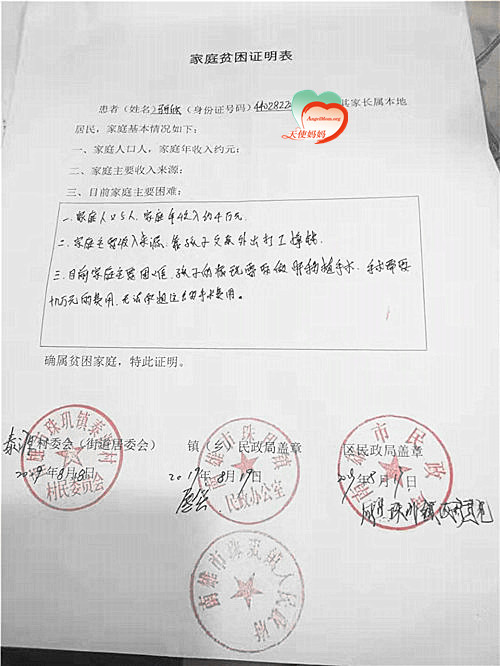 家庭贫困证明表
患者（姓名）（身份证号码）4402822 其家长属本地
AngelMom.org
天使妈妈
居民，家庭基本情况如下：
一、家庭人口人，家庭年收入约元：
二、家庭主要收入来源：
三、目前家庭主要困难：
一.家庭人口5人.家庭年收入约4万元.
二.家庭主要收入来源.靠孩子父亲外出打工挣钱.
三.目前家庭主要困难.孩子的病况需要做肝移植手术.手术需要
十几万元的费用.无法承担这手术费用。
确属贫困家庭，特此证明。
村委会（街道居委会） 镇（乡）民政局盖章 区民政局盖章
2019年8月18日 2019年8月19日 年8月19日
南雄市珠玑镇
村民委员会
南雄市珠玑镇
民政办公室
南雄市民政局
南雄市珠玑镇人民政府